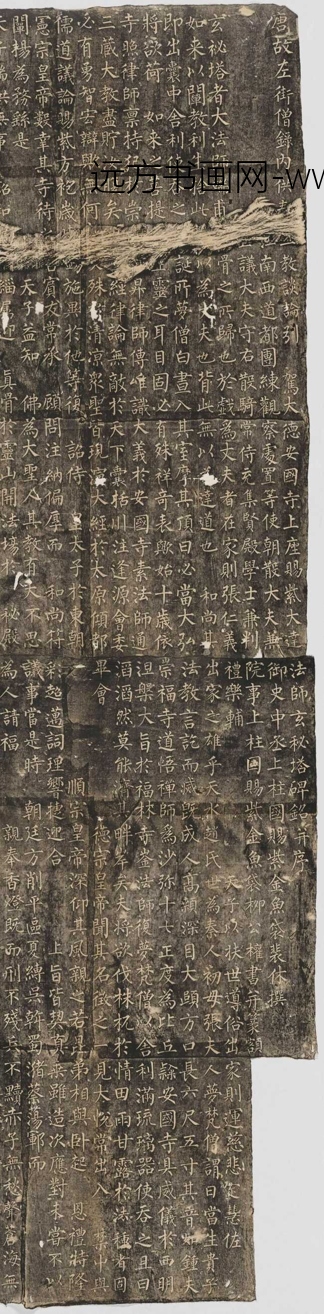 唐故左街僧錄內供教談論引駕大德安國寺上座賜紫大達法師玄秘塔碑銘并序
南西道都團練觀察處置等使朝散大夫兼御史中丞上柱國賜紫金魚袋裴休撰
議大夫守右散騎常侍充集賢殿學士兼判院事上柱國賜紫金魚袋柳權書并篆額
玄秘塔者大法師甫骨之所歸也於戲為丈夫者在家則張仁義禮樂輔天子以扶世導俗出家則運慈悲定慧佐
如來以闡教利此為丈夫也背此無以為達道也和尚其出家之雄乎天水趙氏世為秦人初母張夫人夢梵僧謂曰當生貴子
即出囊中舍利使之誕所夢僧白晝入其室摩其頂曰必當大弘法教言訖而滅既成人高顙深目大頤方口長六尺五寸其音如鍾夫
將欲荷如來提生靈之耳目固必有殊祥奇表歟始十歲依崇福寺道悟禪師為沙彌十七正度為比丘隸安國寺具威儀於西明
寺照律師稟持犯崇昇律師傳唯識大義於安國寺素法師通涅槃大旨於福林寺崟法師復夢梵僧以舍利滿琉璃器使吞之且曰
三藏大教盡貯矣經律論無敵於天下囊括川注逢源會委滔滔然莫能濟其畔岸矣夫將欲伐株杌於情田雨甘露於法種者固
必有勇智宏辯歟何殊清涼眾聖皆現演大經於太原傾都畢會德宗皇帝聞其名徵之一見大悅常出入禁中與
儒道議論賜紫方袍歲施異於他等復詔侍皇太子於東朝順宗皇帝深仰其風親之若昆弟相與臥起恩禮特隆
憲宗皇帝數幸其寺待賓友常承顧問注納偏厚而和尚符彩超邁詞理響捷迎合上旨皆契真乘雖造次應對未嘗不以
闡揚為務繇是天子益知佛為大聖人其教有大不思議事當是時朝廷方削平區夏縛吳斡蜀瀦蔡蕩鄆而
天子端拱無事詔和真骨於靈山開法場於秘殿為人請福親奉香燈既而刑不殘不黷赤子無愁聲蒼海無
远方书画网-ww